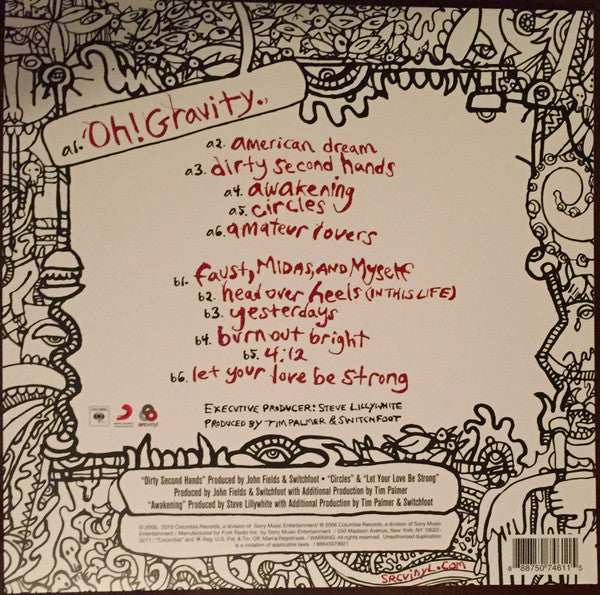 a1. Oh! Gravity.
a2. american dream
a3. dirty second hands
a4. awakening
a5. circles
a6. amateur lovers
b1. faust, MIDAS, AND Myself
b2. head over heels (IN THIS LIFE)
b3. yesterdays
b4. burn out bright
b5. 4:12
b6. let your love be strong
EXECUTIVE PRODUCER: STEVE LILLYWHITE
PRODUCED BY TIM PALMER & SWITCHFOOT
srcvinyl
"Dirty Second Hands" Produced by John Fields & Switchfoot • "Circles" & "Let Your Love Be Strong"
Produced by John Fields & Switchfoot with Additional Production by Tim Palmer
"Awakening" Produced by Steve Lillywhite with Additional Production by Tim Palmer & Switchfoot
℗ 2006, 2015 Columbia Records, a division of Sony Music Entertainment/ © 2006 Columbia Records, a division of Sony Music
Entertainment / Manufactured for Fork Radio Inc. by Sony Music Entertainment / 550 Madison Avenue, New York, NY 10022-
3211 / "Columbia" and Reg. U.S. Pat. & Tm. Off. Marca Registrada. / WARNING: All Rights Reserved. Unauthorized duplication
is a violation of applicable laws. / 88843079921
SRCVINYL.COM
8 88750 74611 5